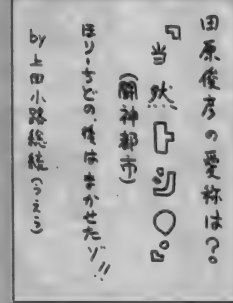 田原俊彦の愛称は?。
『当然トシ○。』
(闘神都市)
ほり〜ちどの、後はまかせたゾ!!
by 上田小路総統(うえる)